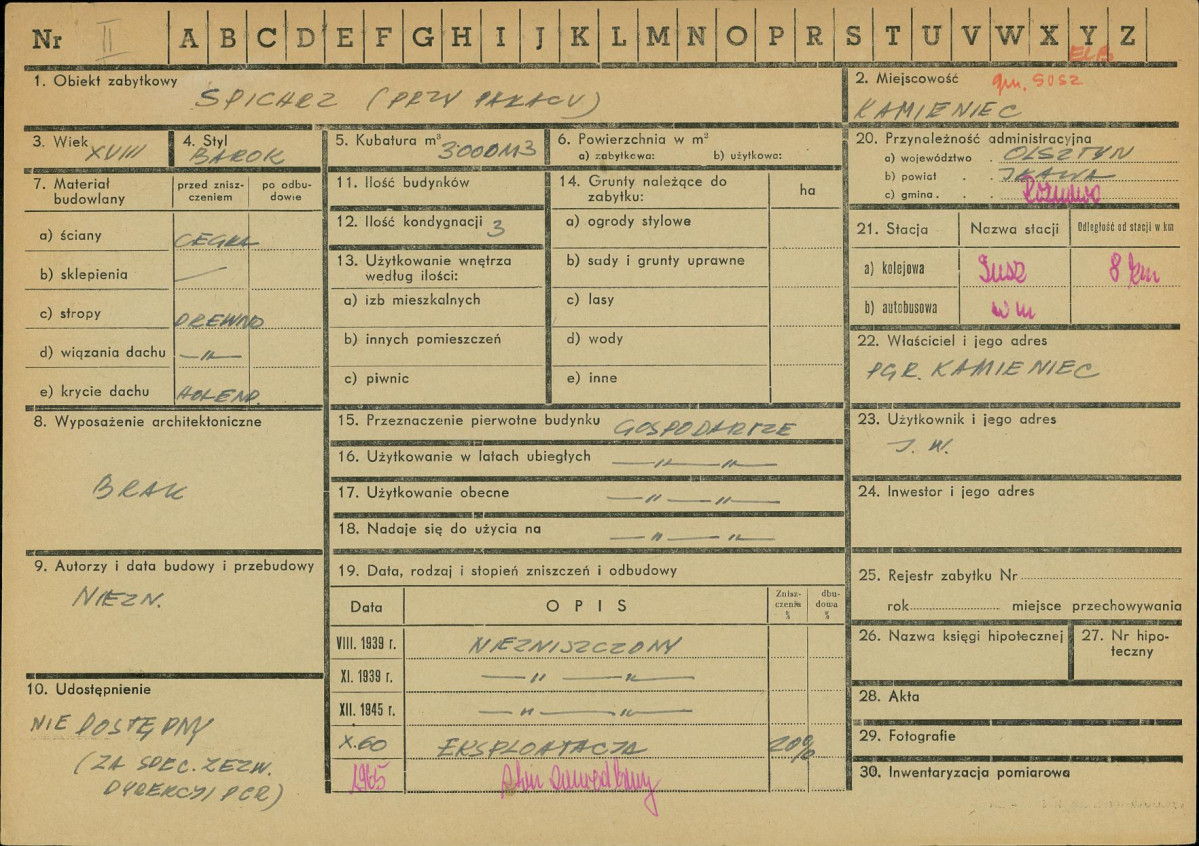 Nr II A B C D E F G H I J K L M N O P R S T U V W X Y Z
ELB
1. Obiekt zabytkowy
SPICHRZ (PRZY PAŁACU)
2. Miejscowość gm. SUSZ
KAMIENIEC
3. Wiek XVIII
4. Styl BAROK
5. Kubatura m³ 3000M3
6. Powierzchnia w m²
a) zabytkowa: b) użytkowa:
7. Materiał budowlany
przed zniszczeniem
po odbudowie
a) ściany CEGŁA
b) sklepienia —
c) stropy DREWNO
d) wiązania dachu —"—
e) krycie dachu HOLEND.
8. Wyposażenie architektoniczne
BRAK
9. Autorzy i data budowy i przebudowy
NIEZN.
10. Udostępnienie
NIEDOSTĘPNY
(ZA SPEC. ZEZW.
DYREKCJI PGR)
11. Ilość budynków
12. Ilość kondygnacji 3
13. Użytkowanie wnętrza według ilości:
a) izb mieszkalnych
b) innych pomieszczeń
c) piwnic
14. Grunty należące do zabytku:
ha
a) ogrody stylowe
b) sady i grunty uprawne
c) lasy
d) wody
e) inne
15. Przeznaczenie pierwotne budynku GOSPODARCZE
16. Użytkowanie w latach ubiegłych —"—"—
17. Użytkowanie obecne —"—"—
18. Nadaje się do użycia na —"—"—
19. Data, rodzaj i stopień zniszczeń i odbudowy
Data OPIS Zniszczenia % dbudowa %
VIII. 1939 r. NIEZNISZCZONY
XI. 1939 r. —"—"—
XII. 1945 r. —"—"—
X.60 EKSPLOATACJA 20%
1965
20. Przynależność administracyjna
a) województwo OLSZTYN
b) powiat IŁAWA
c) gmina
21. Stacja Nazwa stacji Odległość od stacji w km
a) kolejowa Susz 8 km
b) autobusowa w m
22. Właściciel i jego adres
PGR. KAMIENIEC
23. Użytkownik i jego adres
J. W.
24. Inwestor i jego adres
25. Rejestr zabytku Nr
rok miejsce przechowywania
26. Nazwa księgi hipotecznej
27. Nr hipoteczny
28. Akta
29. Fotografie
30. Inwentaryzacja pomiarowa